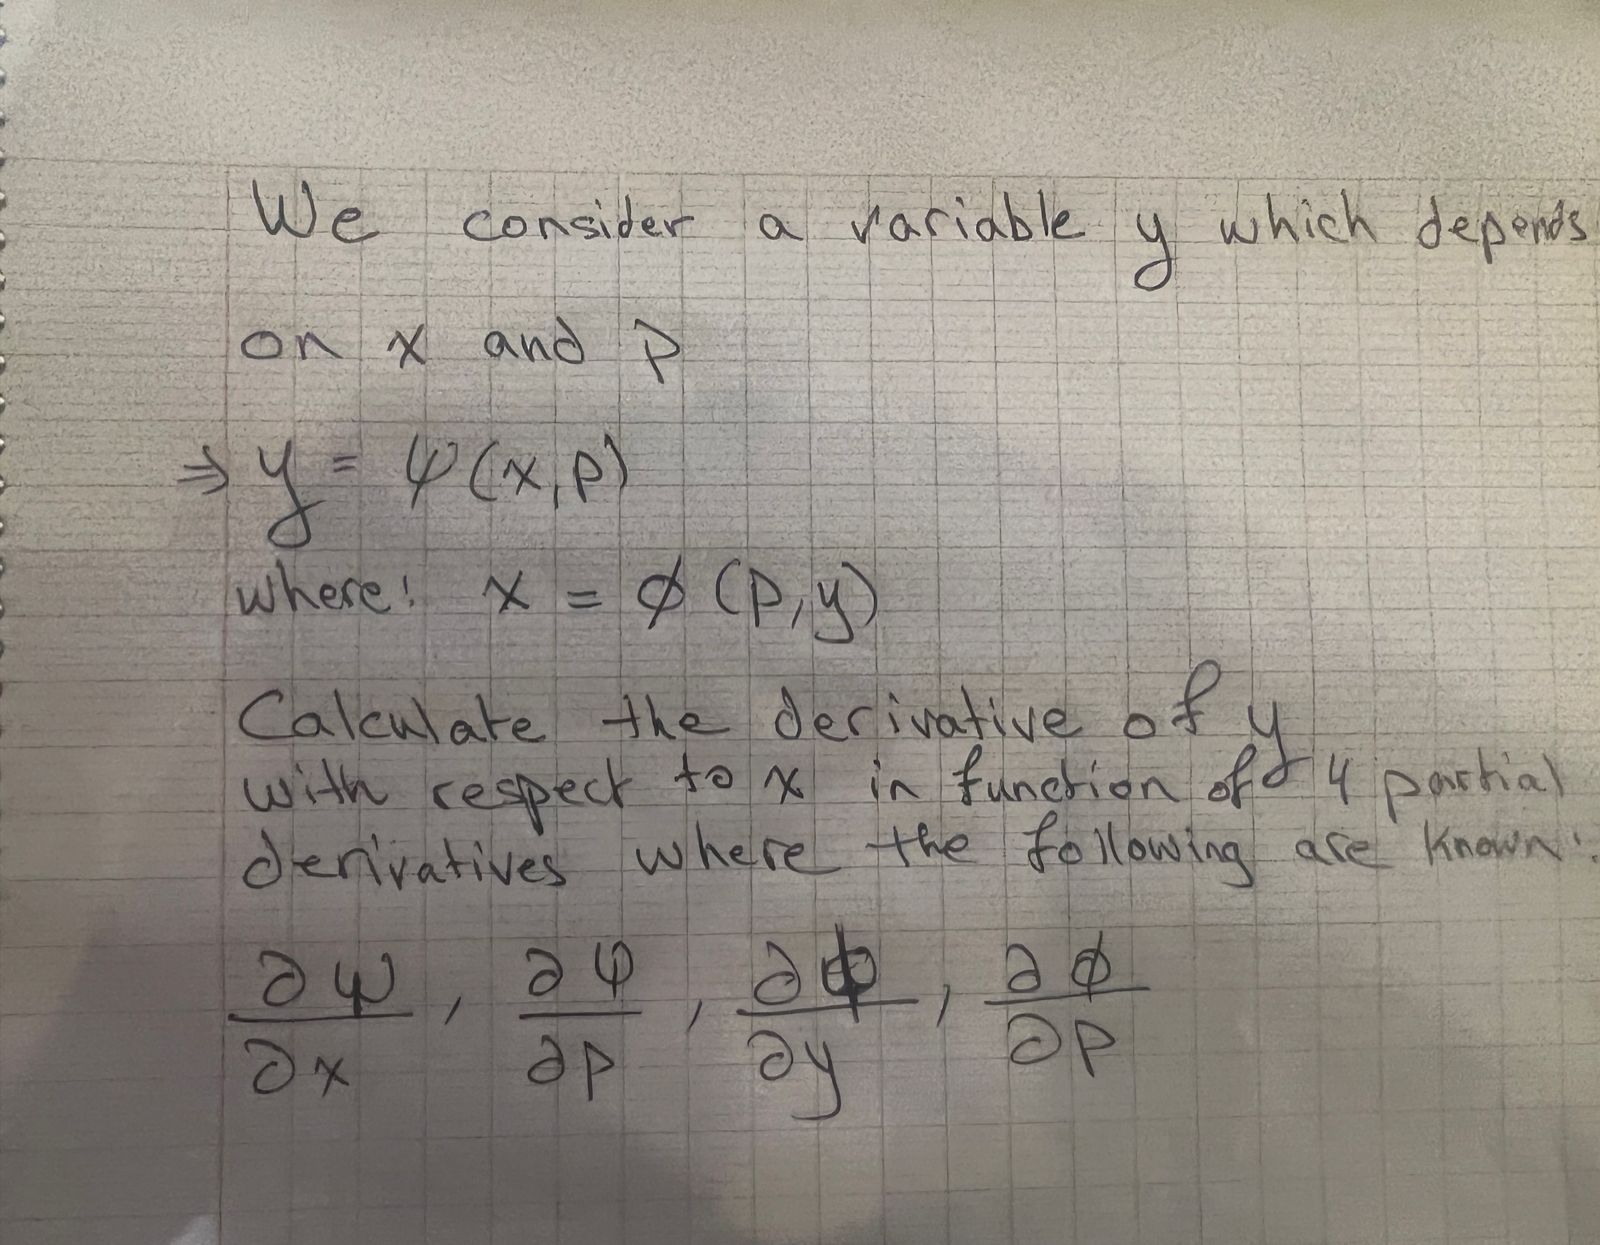 We consider a variable y which depends
on x and p
⇒ y = ψ(x,p)
where: x = ϕ (p,y)
Calculate the derivative of y
with respect to x in function of 4 partial
derivatives where the following are known:
∂ψ/∂x , ∂ψ/∂p , ∂ϕ/∂y , ∂ϕ/∂p